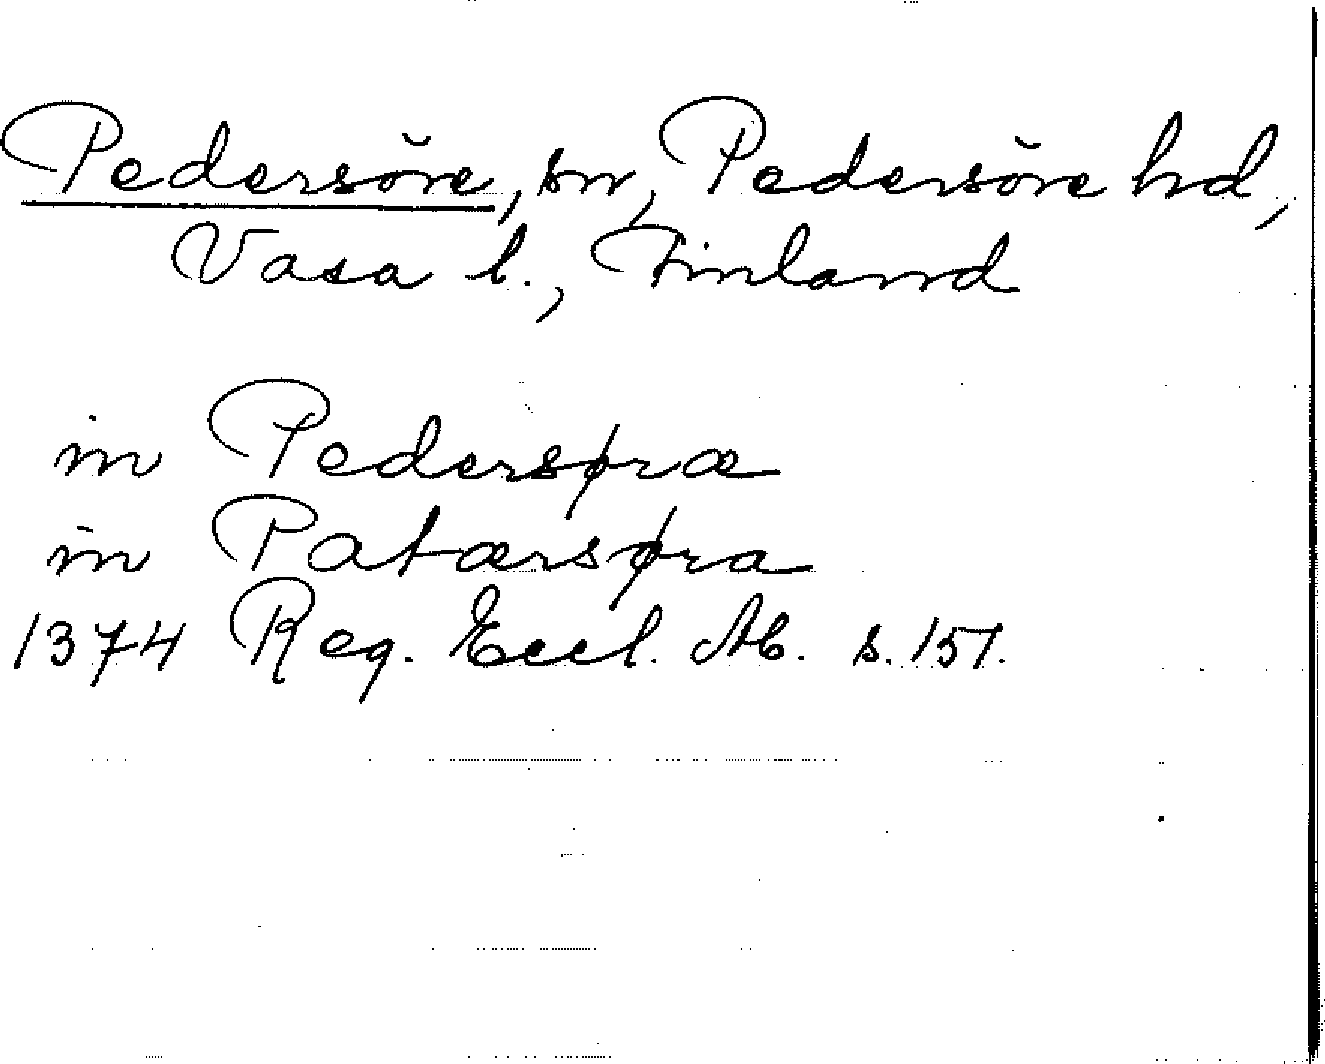 Pedersöre, sn, Pedersöre hd,
Vasa l., Finland
in Pedersøræ
in Patærsøra
1374 Reg. Eccl. Ab. s. 157.